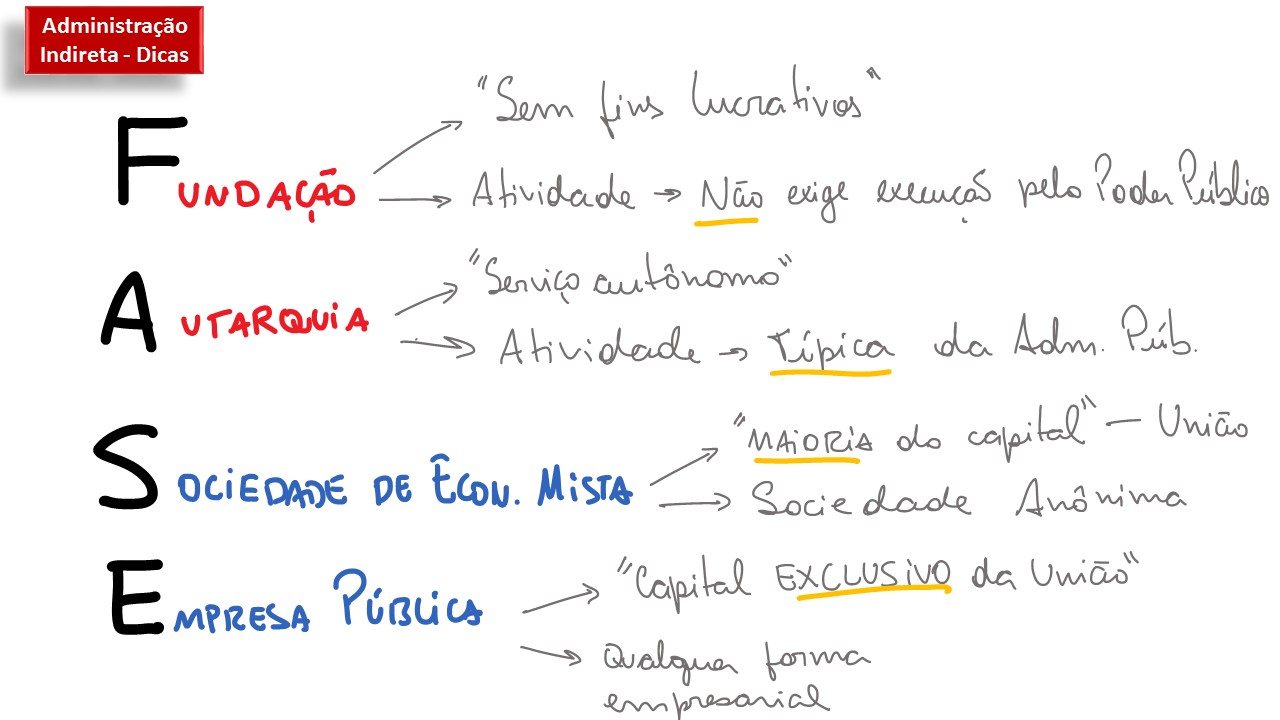 Administração
Indireta - Dicas
"Sem fins lucrativos"
FUNDAÇÃO
Atividade → Não exige execução pelo Poder Público
"Serviço autônomo"
AUTARQUIA
Atividade → Típica da Adm. Púb.
"MAIORIA do capital" — União
SOCIEDADE DE ECON. MISTA
Sociedade Anônima
"Capital EXCLUSIVO da União"
EMPRESA PÚBLICA
Qualquer forma
empresarial